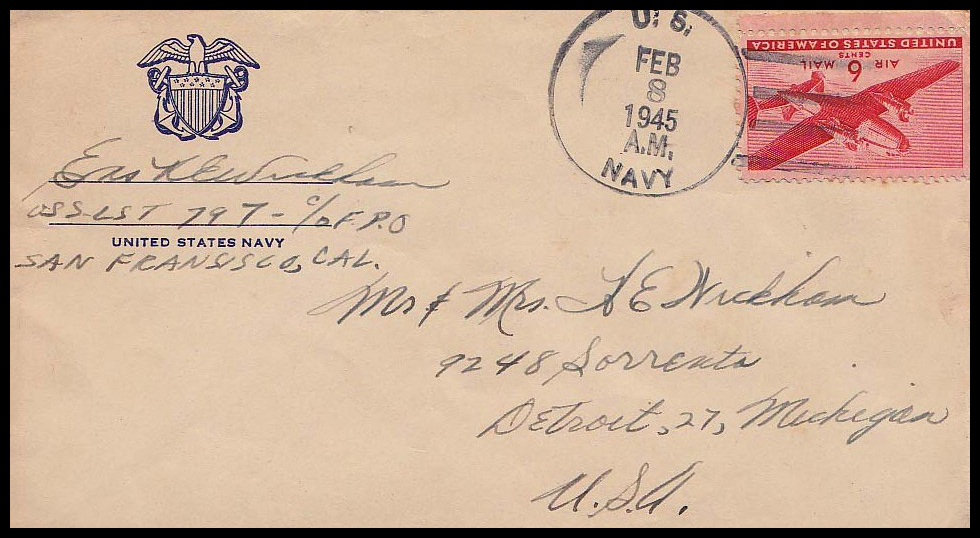 U. S.
FEB
8
1945
A.M.
NAVY
UNITED STATES OF AMERICA
6 CENTS
AIR MAIL
Ens Wickham
USS LST 797 - c/o F.P.O
UNITED STATES NAVY
SAN FRANSISCO, CAL.
Mr & Mrs. H E Wickham
9248 Sorrento
Detroit, 27, Michigan
U.S.A.